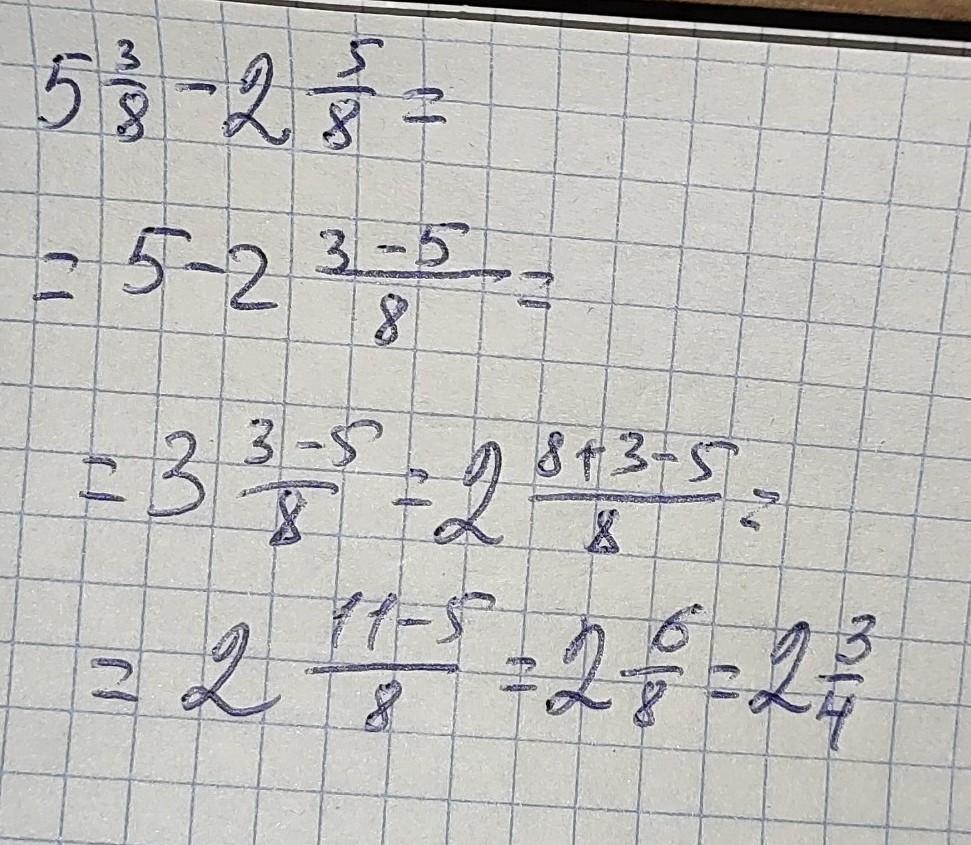 5 3/8 - 2 5/8 =
= 5 - 2 (3 - 5)/8 =
= 3 (3 - 5)/8 = 2 (8 + 3 - 5)/8 =
= 2 (11 - 5)/8 = 2 6/8 = 2 3/4